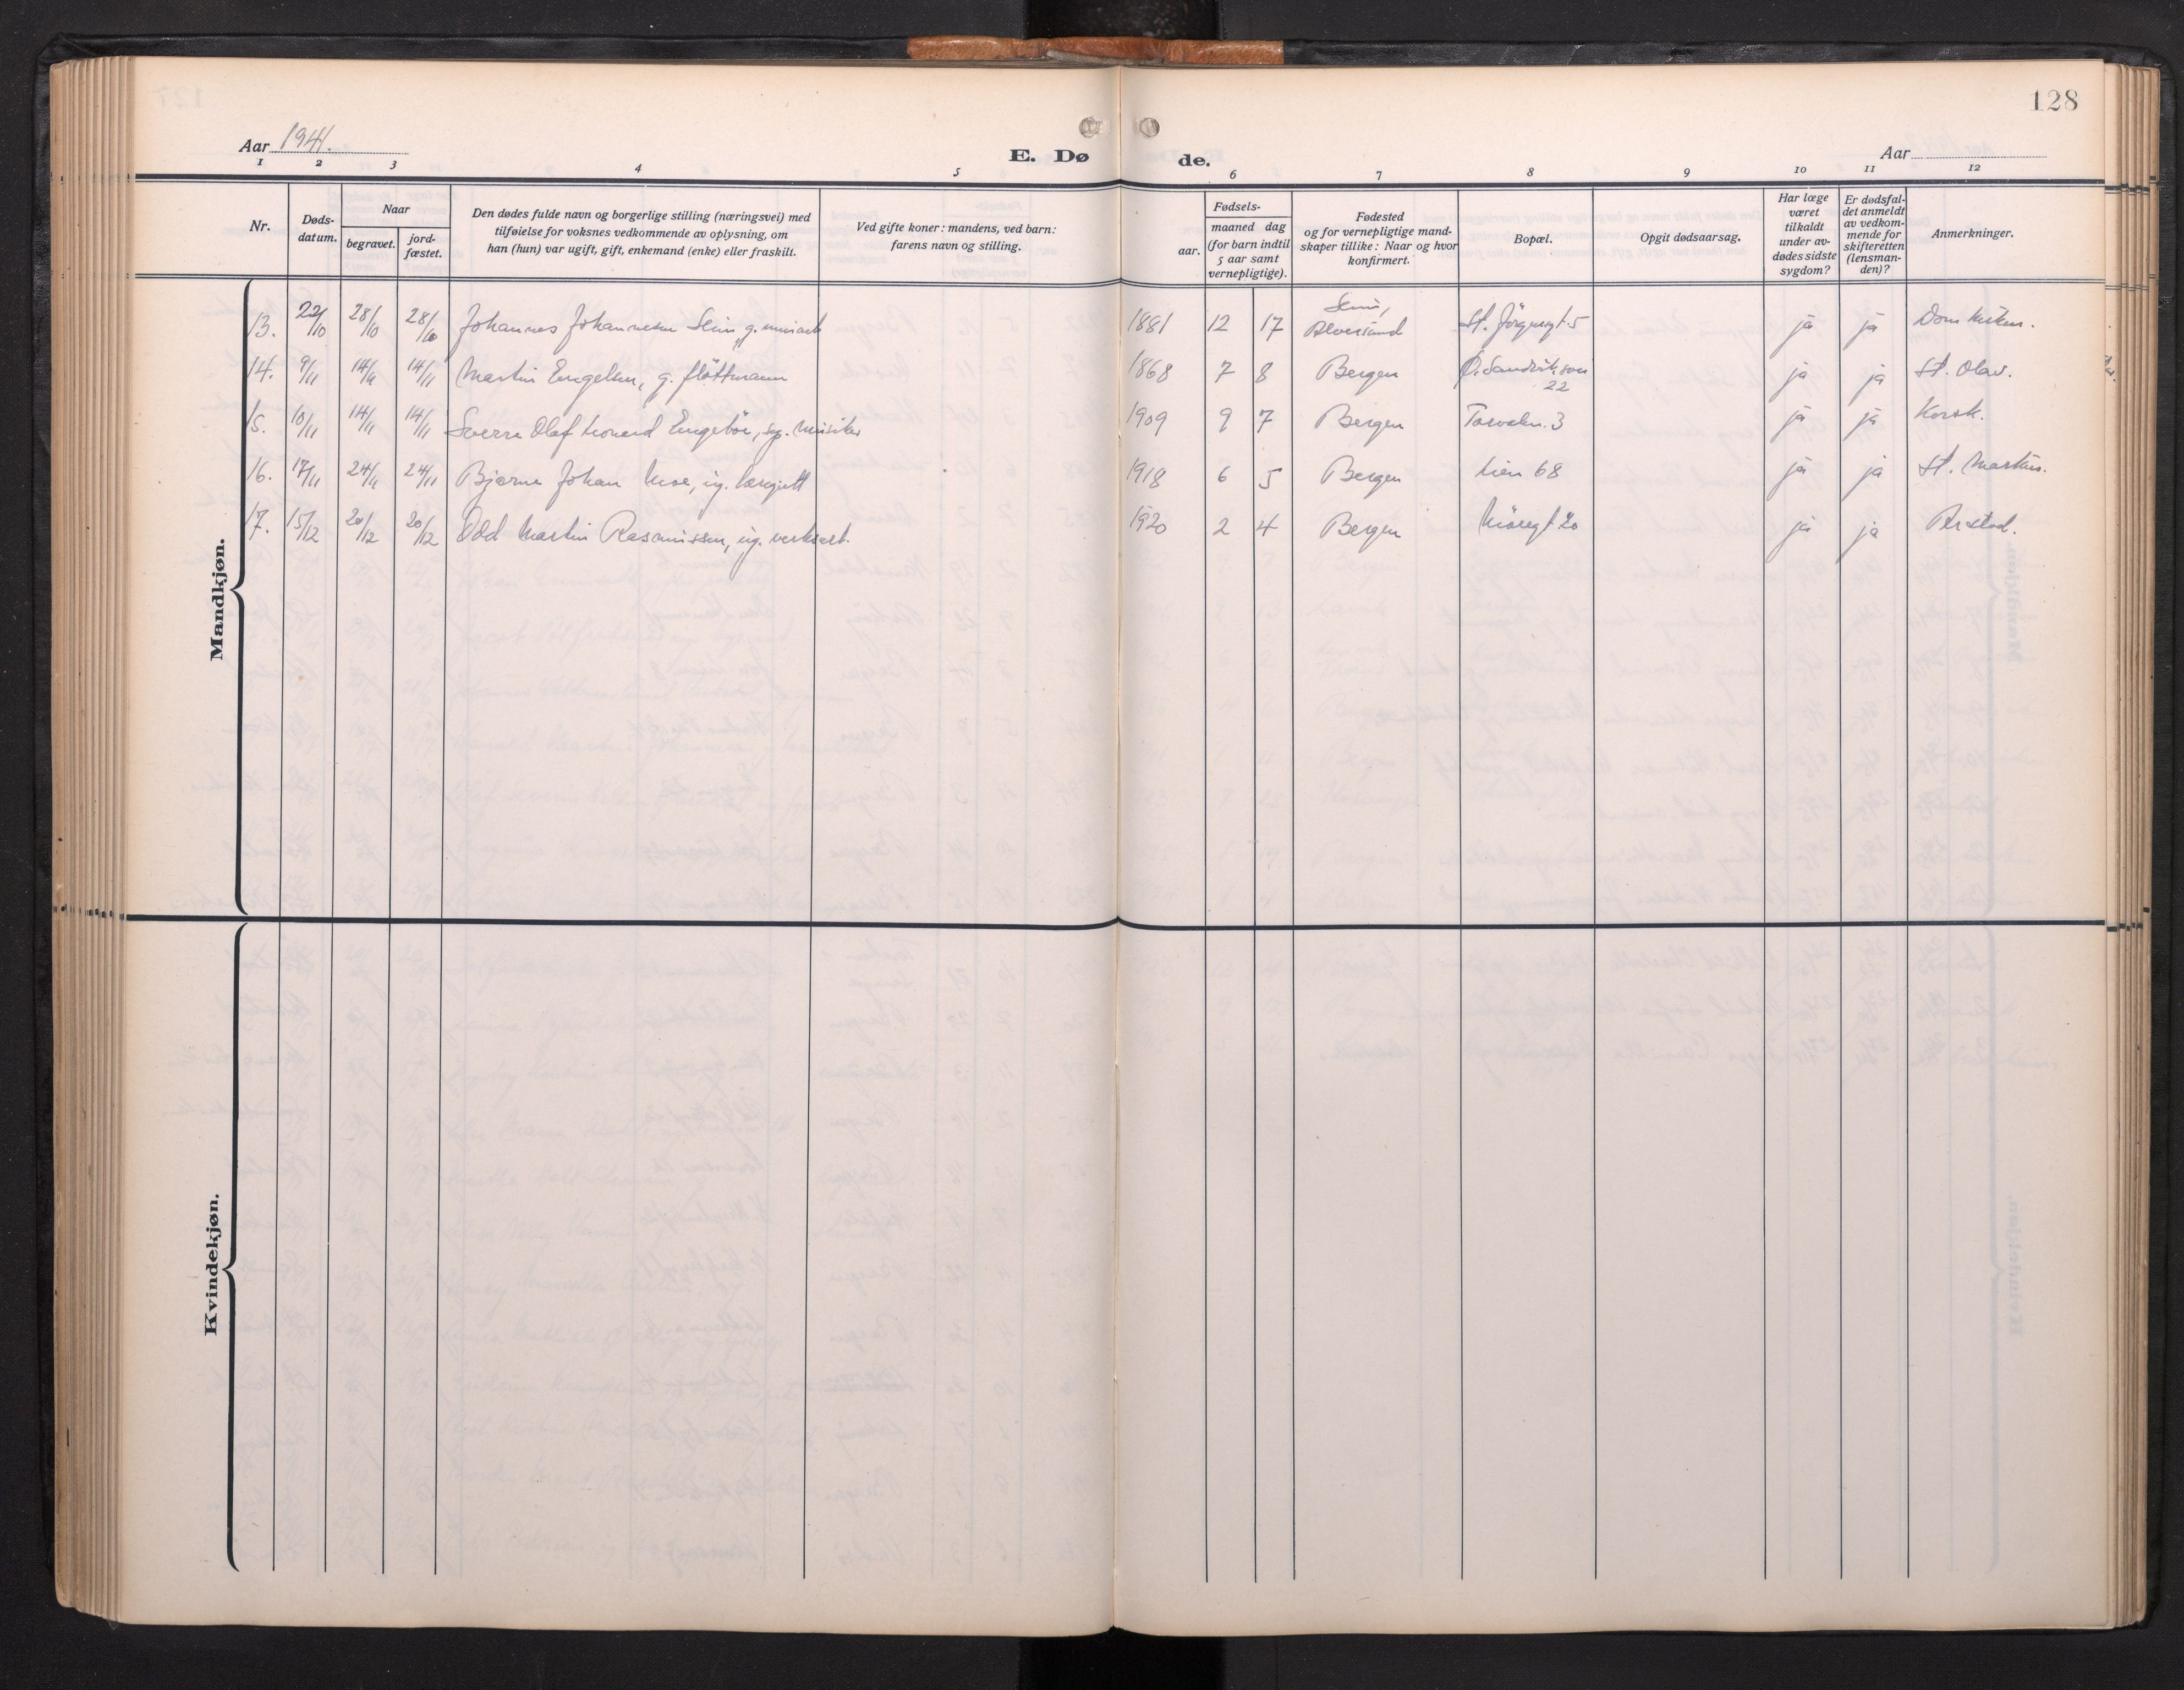 128
Aar 1941.
E. Dø de.
Aar
1 2 3 4 5 6 7 8 9 10 11 12
Nr.
Døds-
datum.
Naar
begravet.
jord-
fæstet.
Den dødes fulde navn og borgerlige stilling (næringsvei) med
tilføielse for voksnes vedkommende av oplysning, om
han (hun) var ugift, gift, enkemand (enke) eller fraskilt.
Ved gifte koner: mandens, ved barn:
farens navn og stilling.
aar.
Fødsels-
maaned dag
(for barn indtil
5 aar samt
vernepligtige).
Fødested
og for vernepligtige mand-
skaper tillike: Naar og hvor
konfirmert.
Bopæl.
Opgit dødsaarsag.
Har læge
været
tilkaldt
under av-
dødes sidste
sygdom?
Er dødsfal-
det anmeldt
av vedkom-
mende for
skifteretten
(lensman-
den)?
Anmerkninger.
Mandkjøn.
13. 22/10 28/10 28/10 Johannes Johannesen Seim, g. 1881 12 17 Seim, Alversund St. Jörgensgt 5 ja ja Domkirken.
14. 9/11 14/11 14/11 Martin Engelsen, g. flöttmann 1868 7 8 Bergen Ö. Sandviksvei 22 ja ja St. Olav.
15. 10/11 14/11 14/11 Sverre Olaf Leonard Engebös, musiker 1909 9 7 Bergen Torvalm. 3 ja ja Korsk.
16. 17/11 24/11 24/11 Bjarne Johan Moe, ug. 1918 6 5 Bergen Lien 68 ja ja St. Markus.
17. 15/12 20/12 20/12 Odd Martin Rasmussen, ug. verksarb. 1920 2 4 Bergen Möregt 20 ja ja Årstad.
Kvindekjøn.